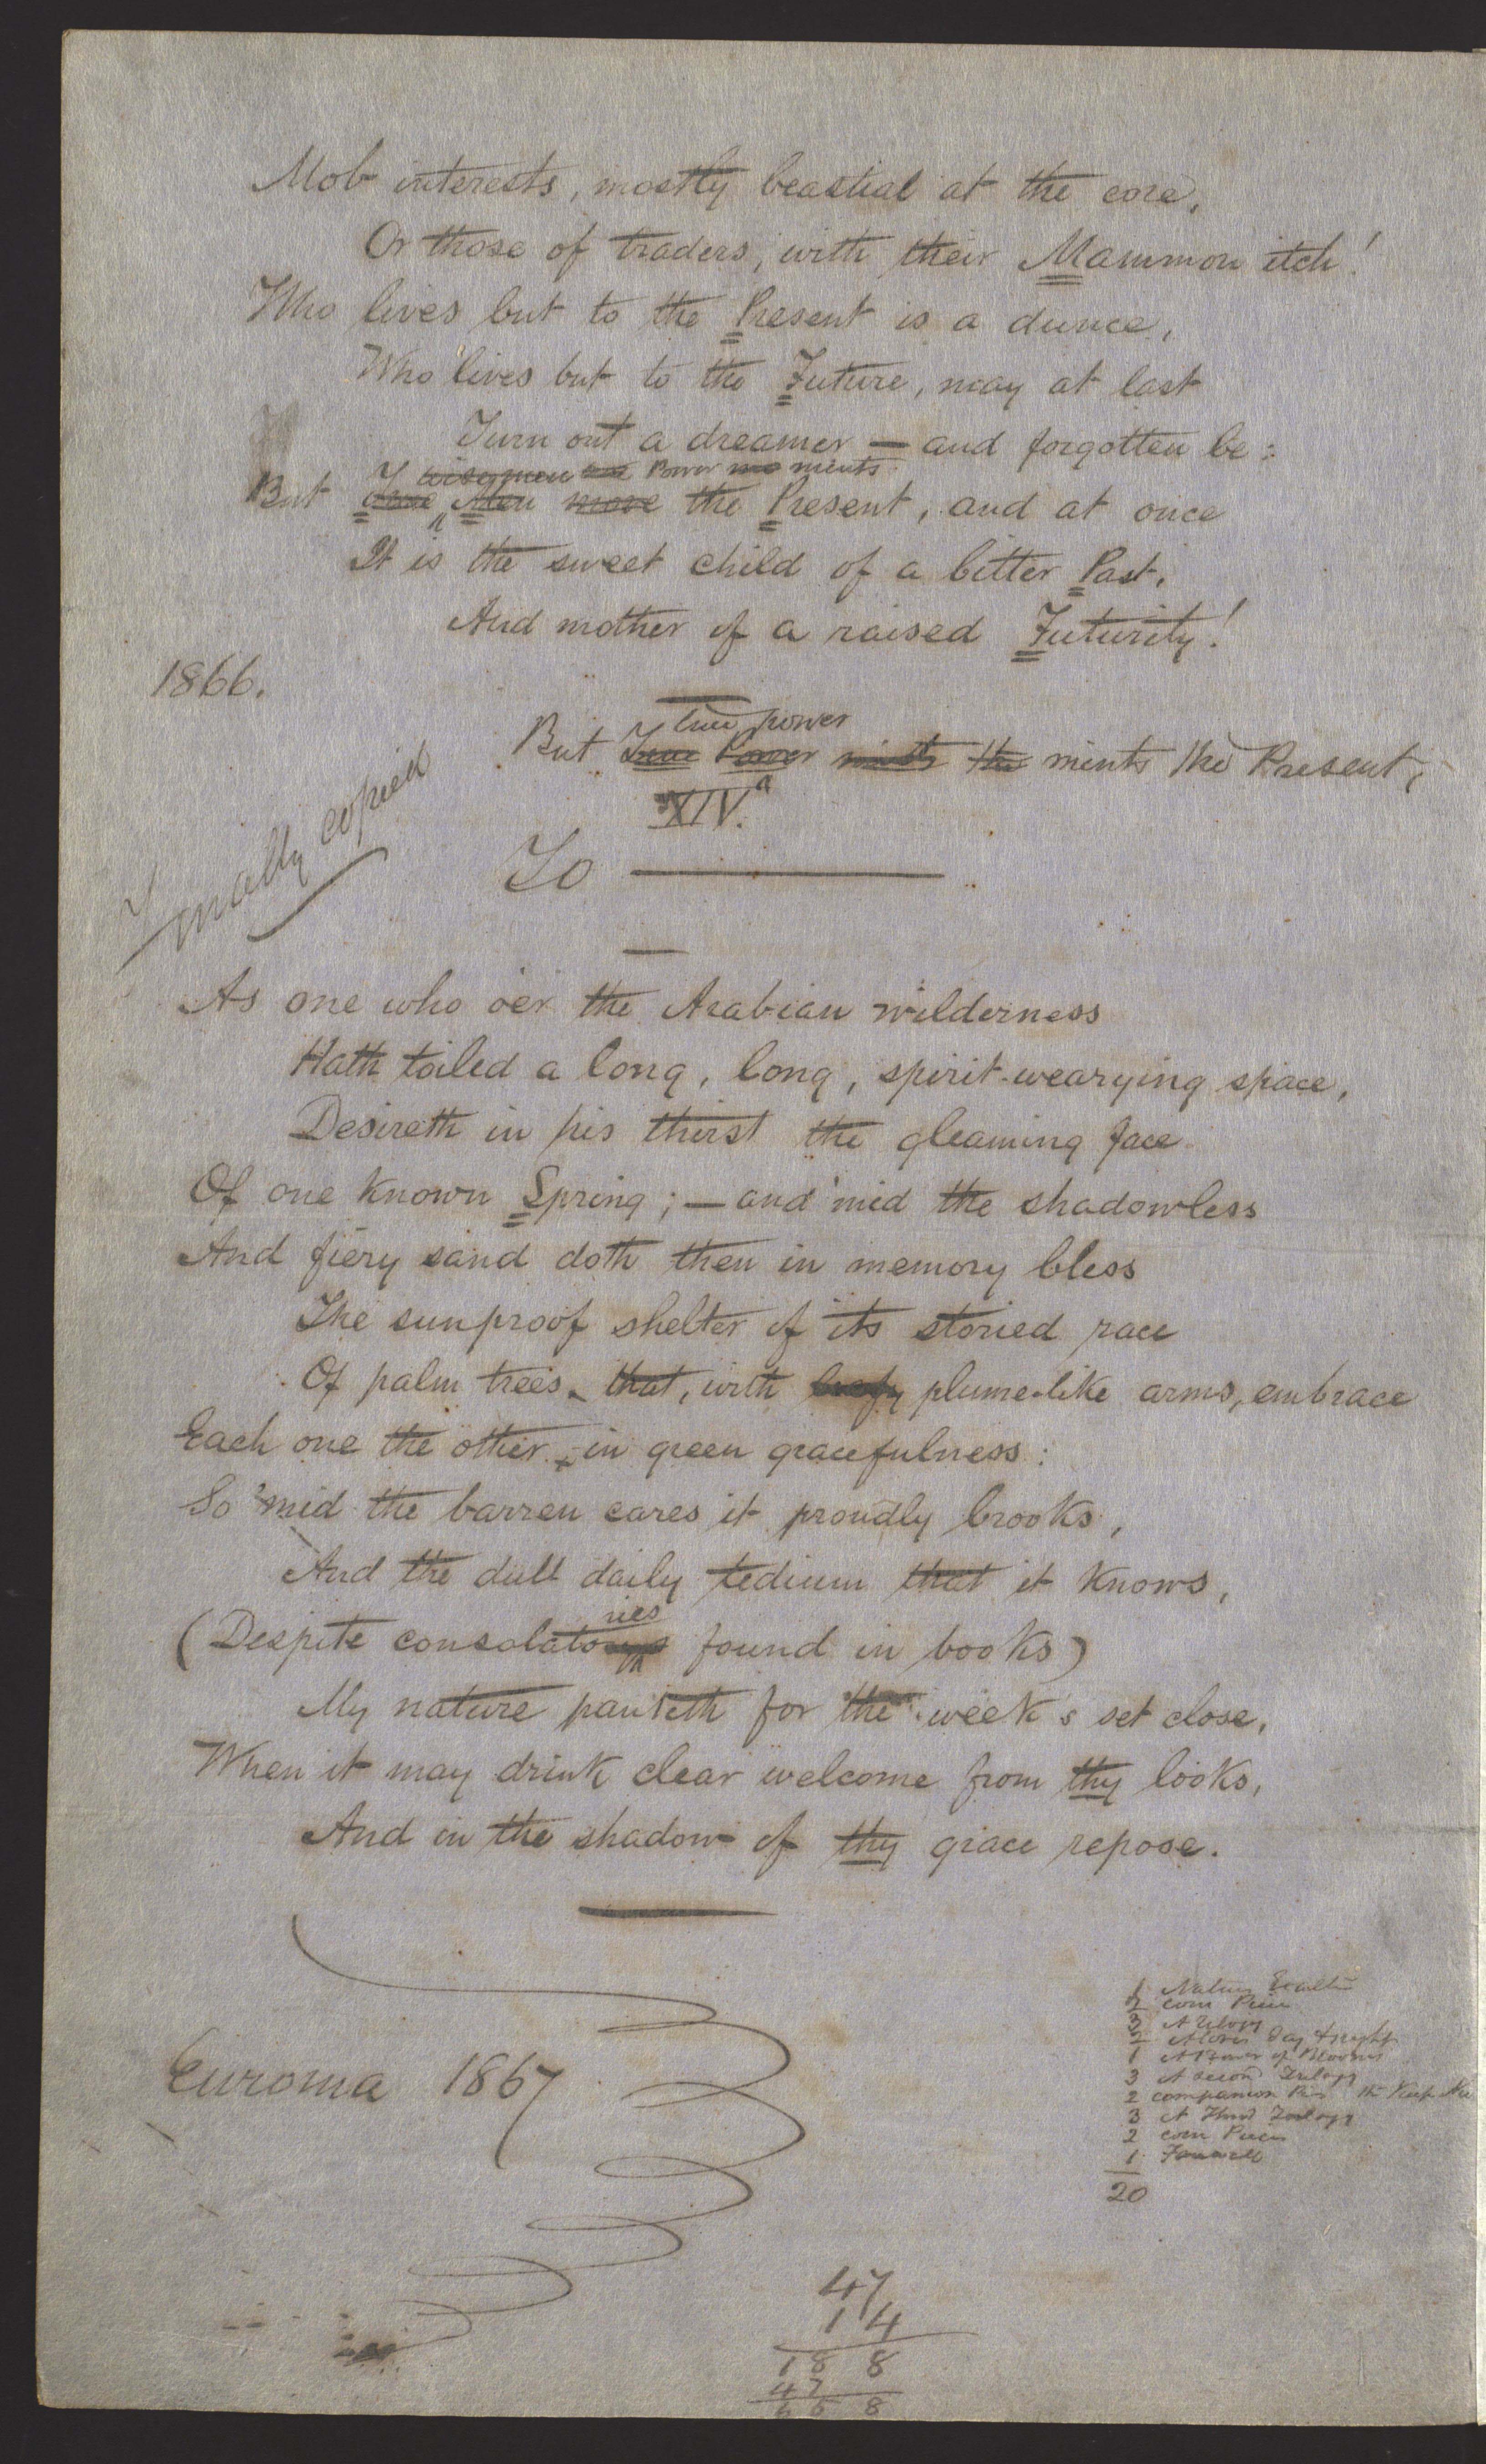 Mob interests, mostly beastial at the core,
Or those of traders, with their Mammon itch!
Who lives but to the Present is a dunce,
Who lives but to the Future, may at last
Turn out a dreamer — and forgotten be:
wisemen Power ments
But Men move the Present, and at once
It is the sweet child of a bitter Past,
And mother of a raised Futurity!
1866.
true power
But True Power mints the mints the Present,
XIV.
Finally copied
To ———
As one who o'er the Arabian wilderness
Hath toiled a long, long, spirit-wearying space,
Desireth in his thirst the gleaming face
Of one known Spring; — and 'mid the shadowless
And fiery sand doth then in memory bless
The sunproof shelter of its storied race
Of palm trees that, with leafy plume-like arms, embrace
Each one the other in green gracefulness:
So 'mid the barren cares it proudly brooks,
And the dull daily tedium that it knows,
ries
(Despite consolatorys found in books)
My nature panteth for the week's set close,
When it may drink clear welcome from thy looks,
And in the shadow of thy grace repose.
Euroma 1867
1
2 com
3 A Trilogy
2 Day & Night
1 A Bower of Blooms
3 A Second Trilogy
2 companion the
3 A Third Trilogy
2 com Pieces
1 Farewell
20
47
14
188
47
658